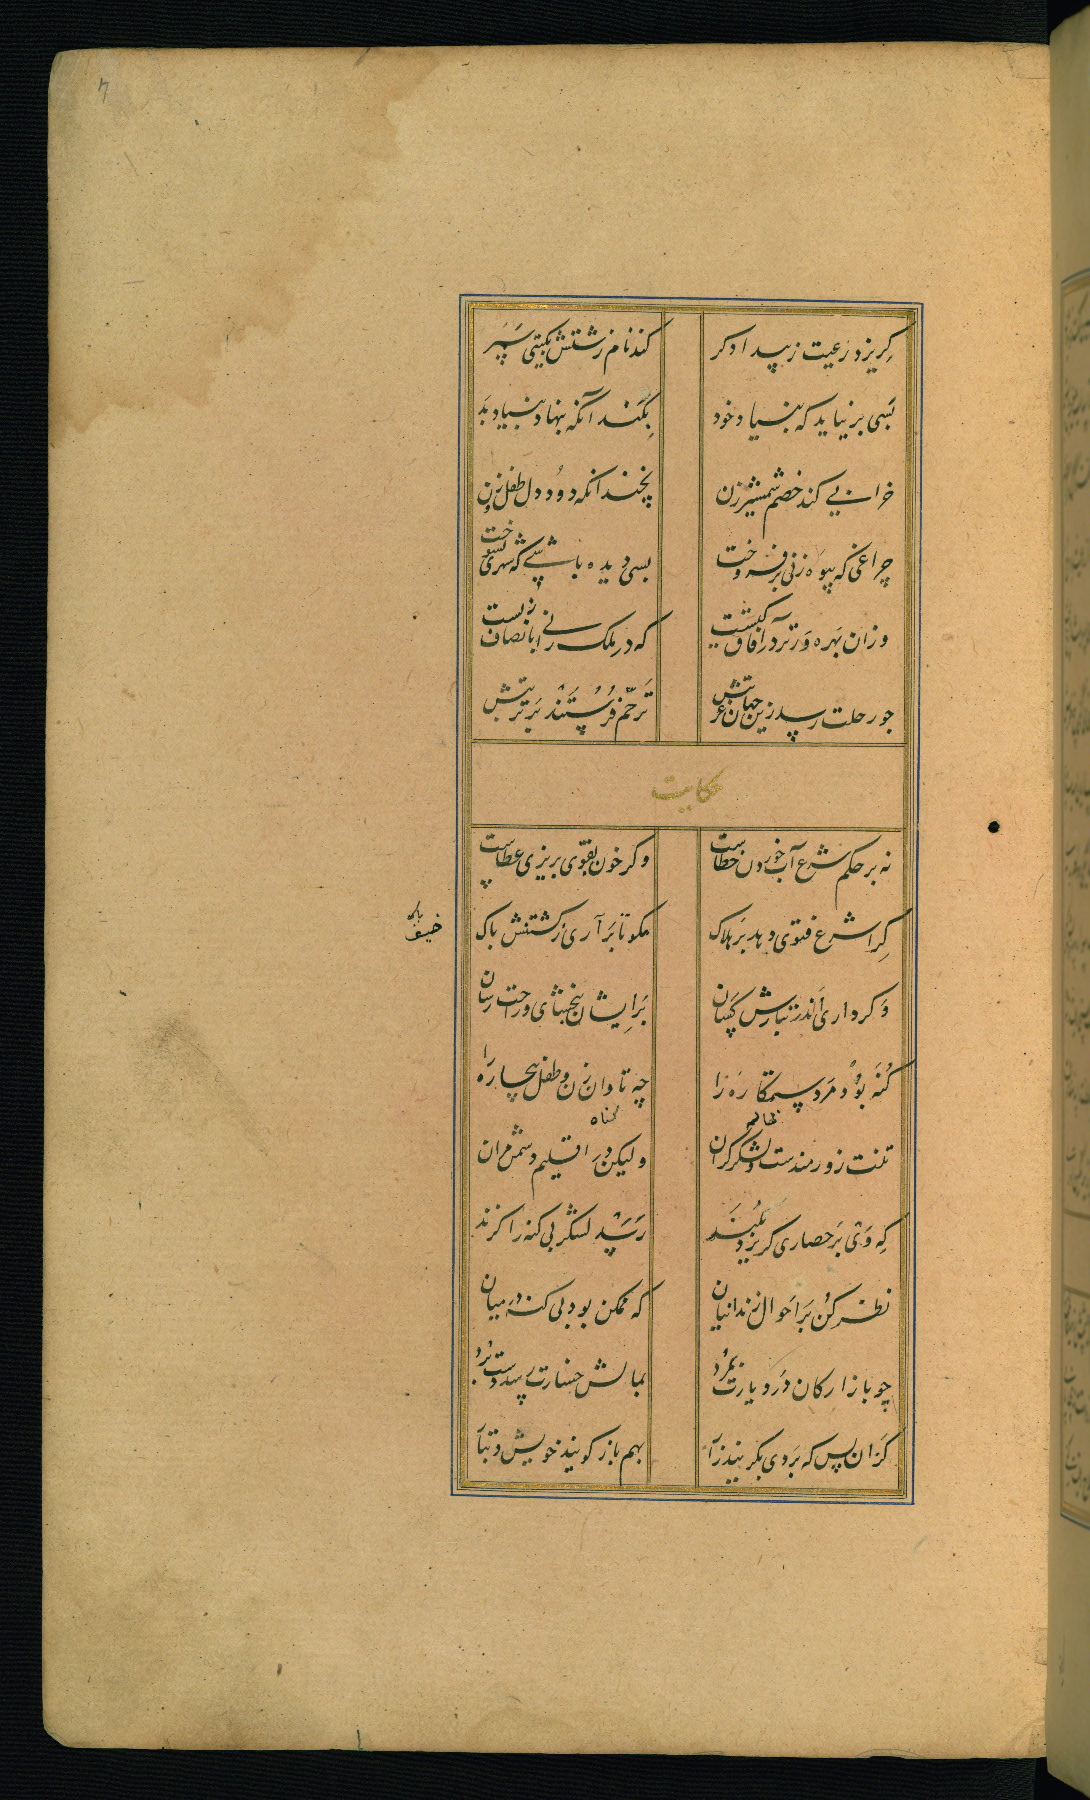 ۷
گریزد رعیت ز بیدادگر
کند نام زشتش بگیتی سمر
بسی بر نیاید که بنیاد خود
بکند آنکه بنهاد بنیاد بد
خرابی کند خصم شمشیرزن
نچندانکه دود دل طفل و زن
چراغی که بیوه زنی برفروخت
بسی دیده باشی که شهری بسوخت
وزان بهره ورتر در آفاق کیست
که در ملک رانی بانصاف زیست
چو رحلت رسد زین جهان غربتش
ترحم فرستند بر تربتش
حکایت
نه بر حکم شرع آب خوردن خطاست
وگر خون بفتوی بریزی عطاست
کرا شرع فتوی دهد بر هلاک
مگو تا بر آری ز کشتنش باک
وگر داری اندر تبارش کسان
بر ایشان ببخشای و راحت رسان
گنه بود مرد ستمکاره را
چه تاوان زن و طفل بیچاره را
ظالم
گناه
تنت زورمندست و لشکر گران
ولیکن در اقلیم دشمن مران
که وی بر حصاری گریزد بلند
رسد لشکر بی گنه را گزند
نظر کن بر احوال زندانیان
که ممکن بود بی گنه در میان
چو بازارگان در دیارت بمرد
بمالش خسارت رسد دست برد
کزان پس که بر وی بگریند زار
بهم باز گویند خویش و تبار